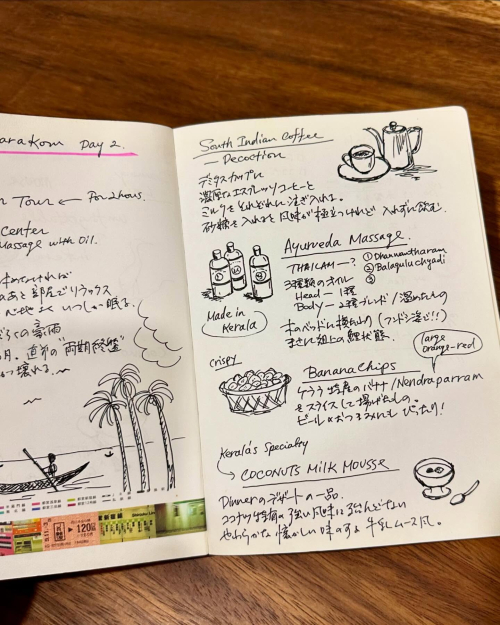 araKom Day 2.
n Tour ← For 2 hours.
Center
Massage with Oil.
のあと部屋でリラックス
いつしか眠る。
壊れる.
120
South Indian Coffee
— Decoction
デミタスカップに
濃厚なエスプレッソコーヒーと
ミルクをそれぞれに注ぎ入れる。
砂糖を入れると風味が極立つけれど 入れずに飲む.
Ayurveda Massage.
THAILAM —? ① Dhannantharam
② Balaguluchyadi
③
3種類のオイル
Head — 1種
Body — 2種ブレンド / 温めたもの
木のベッドに横たわり (フンドシ姿で!!)
まさに俎上の鯉状態.
Made in Kerala
crispy
Banana chips
large
orange-red
ケララ特産のバナナ/Nendraparram
をスライスして揚げたもの。
ビールのおつまみにもぴったり!
Kerala's Specialty
COCONUTS MILK MOUSSE
Dinnerのデザートの一品.
ココナツ特有の強い風味は殆んどない
やわらかな懐かしい味のする牛乳ムース風.